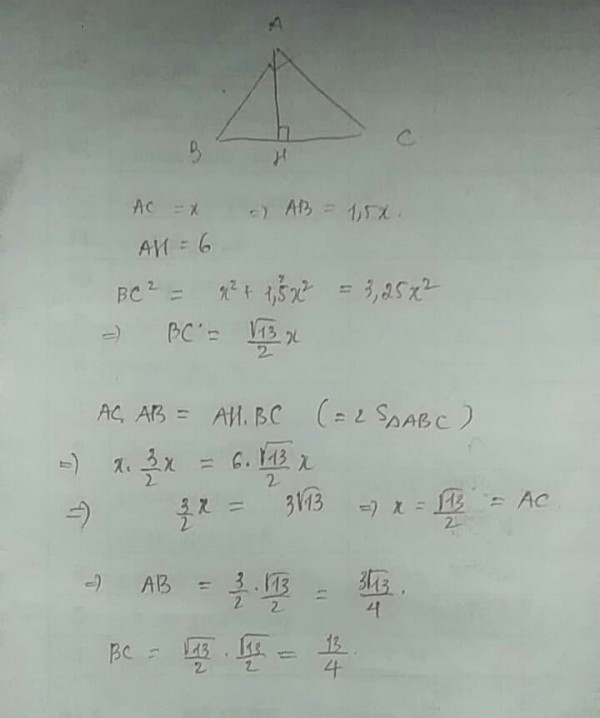 A
B H C
AC = x => AB = 1,5x.
AH = 6
BC² = x² + 1,5²x² = 3,25x²
=> BC = √13/2 x
AC. AB = AH. BC (= 2 S△ABC)
=> x. 3/2 x = 6. √13/2 x
=> 3/2 x = 3√13 => x = √13/2 = AC
=> AB = 3/2 . √13/2 = 3√13/4 .
BC = √13/2 . √13/2 = 13/4 .